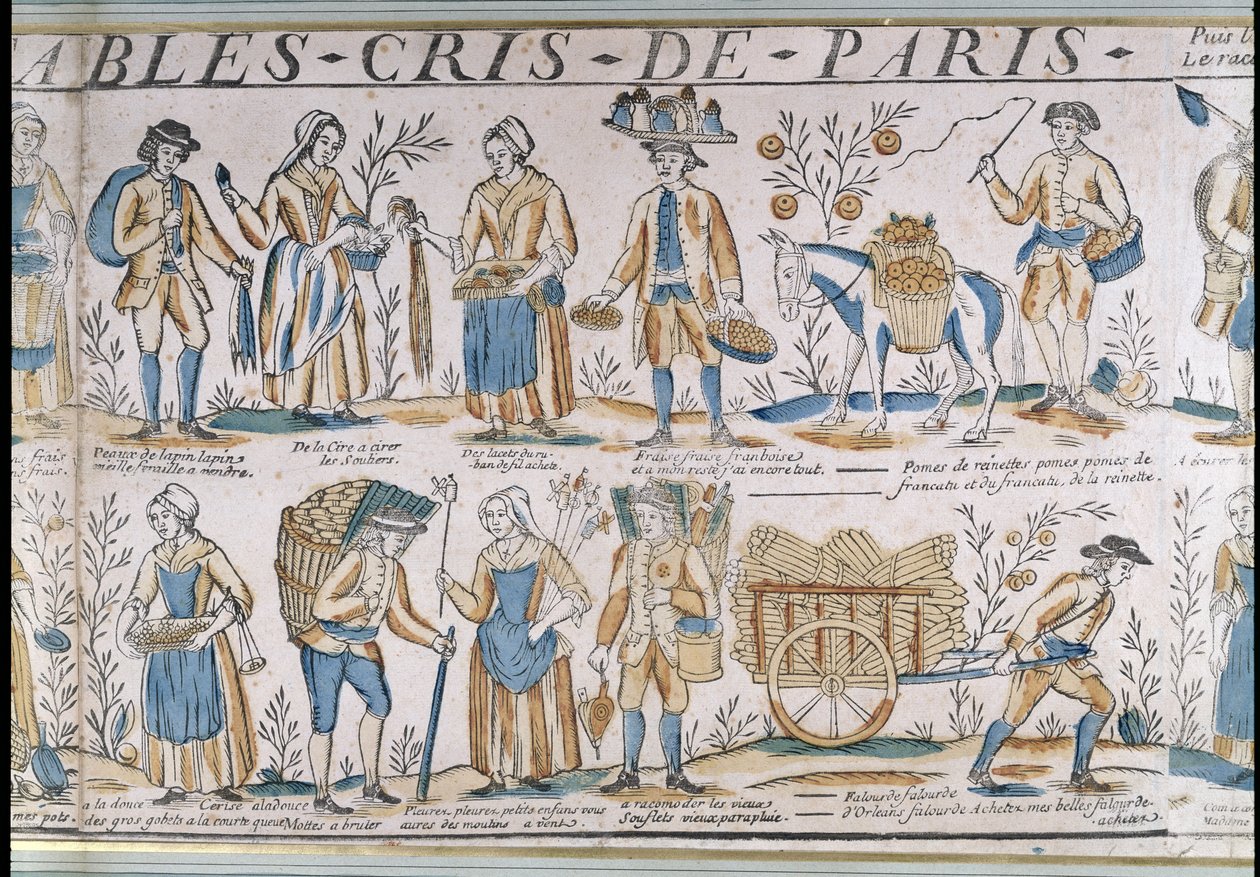 ABLES - CRIS - DE - PARIS -
Puis l'
Le rac
ns frais
ns frais.
Peaux de lapin lapin
vieille feraille a vendre.
De la Cire a cirer
les Souliers.
Des lacets du ru-
ban de fil achete.
Fraise fraise franboise
et a mon reste j'ai encore tout.
Pomes de reinettes pomes pomes de
francatu et du francatu, de la reinette.
A écurer les
mes pots.
a la douce Cerise a la douce
des gros gobets a la courte queue
Mottes a bruler
Pleurez pleurez petits enfans vous
aures des moulins a vent.
a racomoder les vieux
Souflets vieux parapluie.
Falourde falourde
d'Orleans falourde Achetez mes belles falourde.
acheter.
Madame